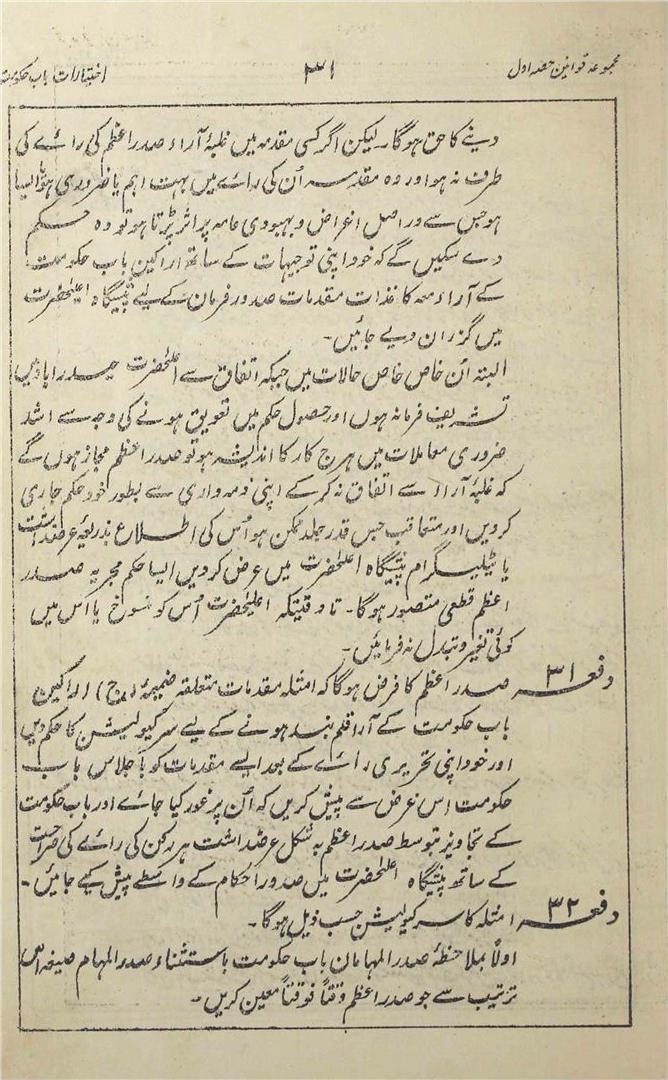 مجموعہ قوانین حصہ اول
۳۱
اختیارات باب حکومت
دینے کا حق ہوگا۔ لیکن اگر کسی مقدمہ میں غلبۂ آراء صدر اعظم کی رائے کی
طرف نہ ہو اور وہ مقدمہ اُن کی رائے میں بہت اہم یا ضروری ہو یا ایسا
ہو جس سے دراصل اغراض و بہبودی عامہ پر اثر پڑتا ہو تو وہ حکم
دے سکیں گے کہ خود اپنی توجیہات کے ساتھ اراکین باب حکومت
کے آراء معہ کاغذات مقدمات صدور فرمان کے لیے پیشگاہ اعلیٰحضرت
میں گزران دیے جائیں۔
البتہ اُن خاص خاص حالات میں جبکہ اتفاق سے اعلیٰحضرت حیدرآباد میں
تشریف فرما نہ ہوں اور حصول حکم میں تعویق ہونے کی وجہ سے اشد
ضروری معاملات میں ہرج کار کا اندیشہ ہو تو صدر اعظم مجاز ہوں گے
کہ غلبۂ آراء سے اتفاق نہ کرکے اپنی ذمہ داری سے بطور خود حکم جاری
کردیں اور متعاقب جس قدر جلد ممکن ہو اُس کی اطلاع بذریعۂ عرضداشت
یا ٹیلیگرام پیشگاہ اعلیٰحضرت میں عرض کردیں ایسا حکم مجریہ صدر
اعظم قطعی متصور ہوگا۔ تا وقتیکہ اعلیٰحضرت اُس کو منسوخ یا اس میں
کوئی تغیر و تبدل نہ فرمائیں۔
دفعہ ۳۱ صدر اعظم کا فرض ہوگا کہ امثلہ مقدمات متعلقہ ضمیمۂ (ج) اراکین
باب حکومت کے آرا قلمبند ہونے کے لیے سرکیولیشن کا حکم دیں
اور خود اپنی تحریری رائے کے بعد ایسے مقدمات کو با جلاس باب
حکومت اس غرض سے پیش کریں کہ اُن پر غور کیا جائے اور باب حکومت
کے تجاویز بتوسط صدر اعظم بہ شکل عرضداشت ہر رکن کی رائے کی صراحت
کے ساتھ پیشگاہ اعلیٰحضرت میں صدور احکام کے واسطے پیش کیے جائیں۔
دفعہ ۳۲ امثلہ کا سرکیولیشن حسب ذیل ہوگا۔
اولاً بملاحظۂ صدر المہامان باب حکومت باستثناء صدر المہام صیغہ اس
ترتیب سے جو صدر اعظم وقتاً فوقتاً معین کریں۔